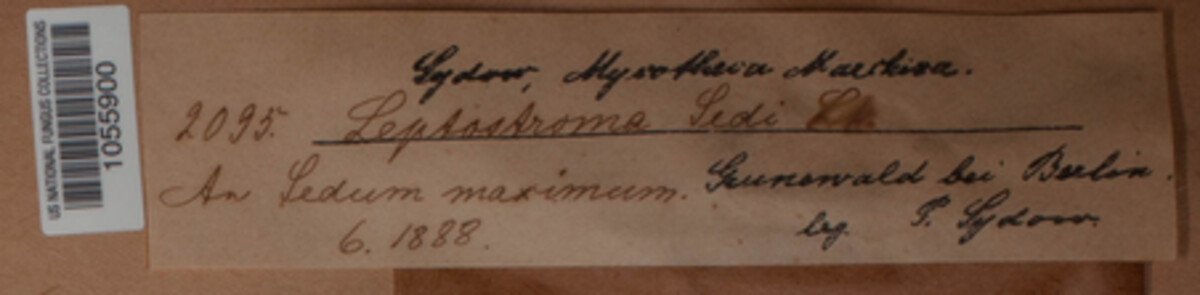 US NATIONAL FUNGUS COLLECTIONS
1055900
Sydow, Mycotheca Marchica.
2095. Leptostroma Sedi Lk.
An Sedum maximum. Grunewald bei Berlin.
6. 1888. leg. P. Sydow.